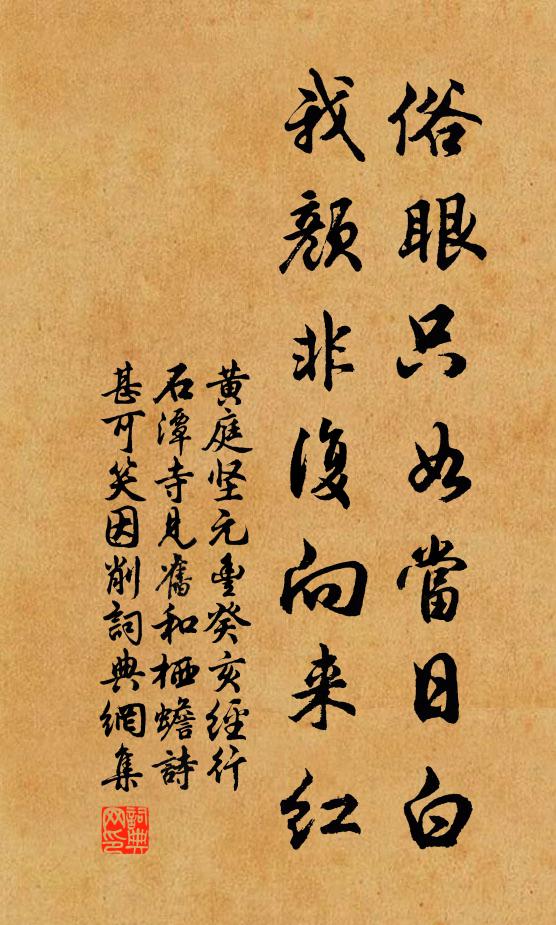 俗眼只如當日白
我顏非復向来红
黄庭坚元豊癸亥經行
石潭寺見舊和栖蟾詩
甚可笑因削詞典網集
詞典网印